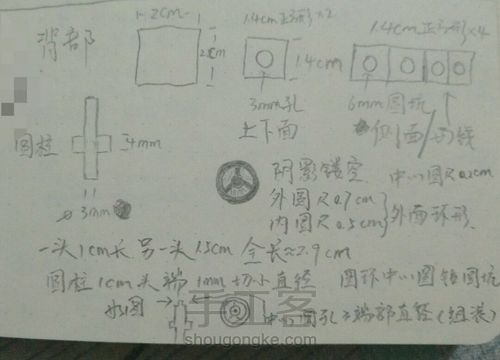 背部
2cm
2cm
1.4cm正方形×2
1.4cm
3mm孔
上下面
1.4cm正方形×4
6mm圆坑
侧面
圆柱
4mm
3mm
阴影镂空
中心圆R0.2cm
外圆R0.7cm
内圆R0.5cm
外面环形
一头1cm长 另一头1.5cm 全长≈2.9cm
圆柱1cm头端1mm切小直径
圆环中心圆镂圆坑
如图
中心圆孔>端部直径(组装)
手工客
shougongke.com